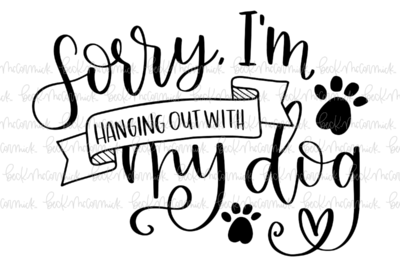 Sorry, I'm
HANGING OUT WITH
my dog